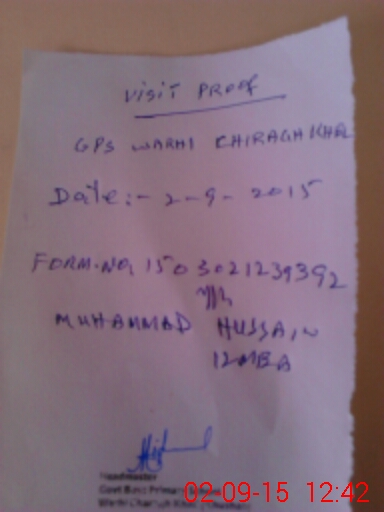 VISIT PROOF
GPS WARHI CHIRAGH KHEL
Date:- 2-9-2015
FORM.NO, 150 3021239392
MUHAMMAD HUSSAIN
12MBA
Headmaster
Govt Boys Primary School
Warhi Chiragh Khel
02-09-15 12:42